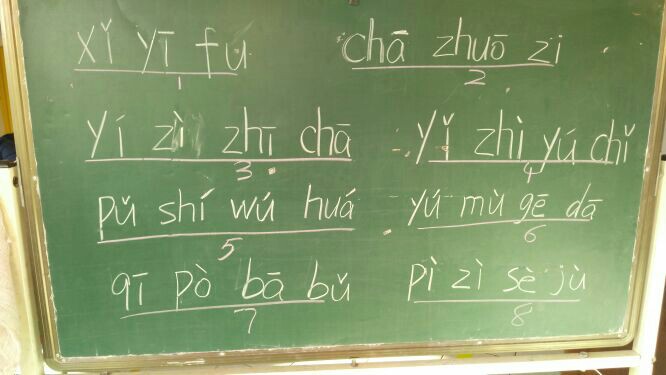 xǐ yī fu chā zhuō zi
1 2
yí zì zhī chā yǐ zhì yú chǐ
3 4
pǔ shí wú huá yú mù gē dā
5 6
qī pò bā bǔ pì zì sè jù
7 8